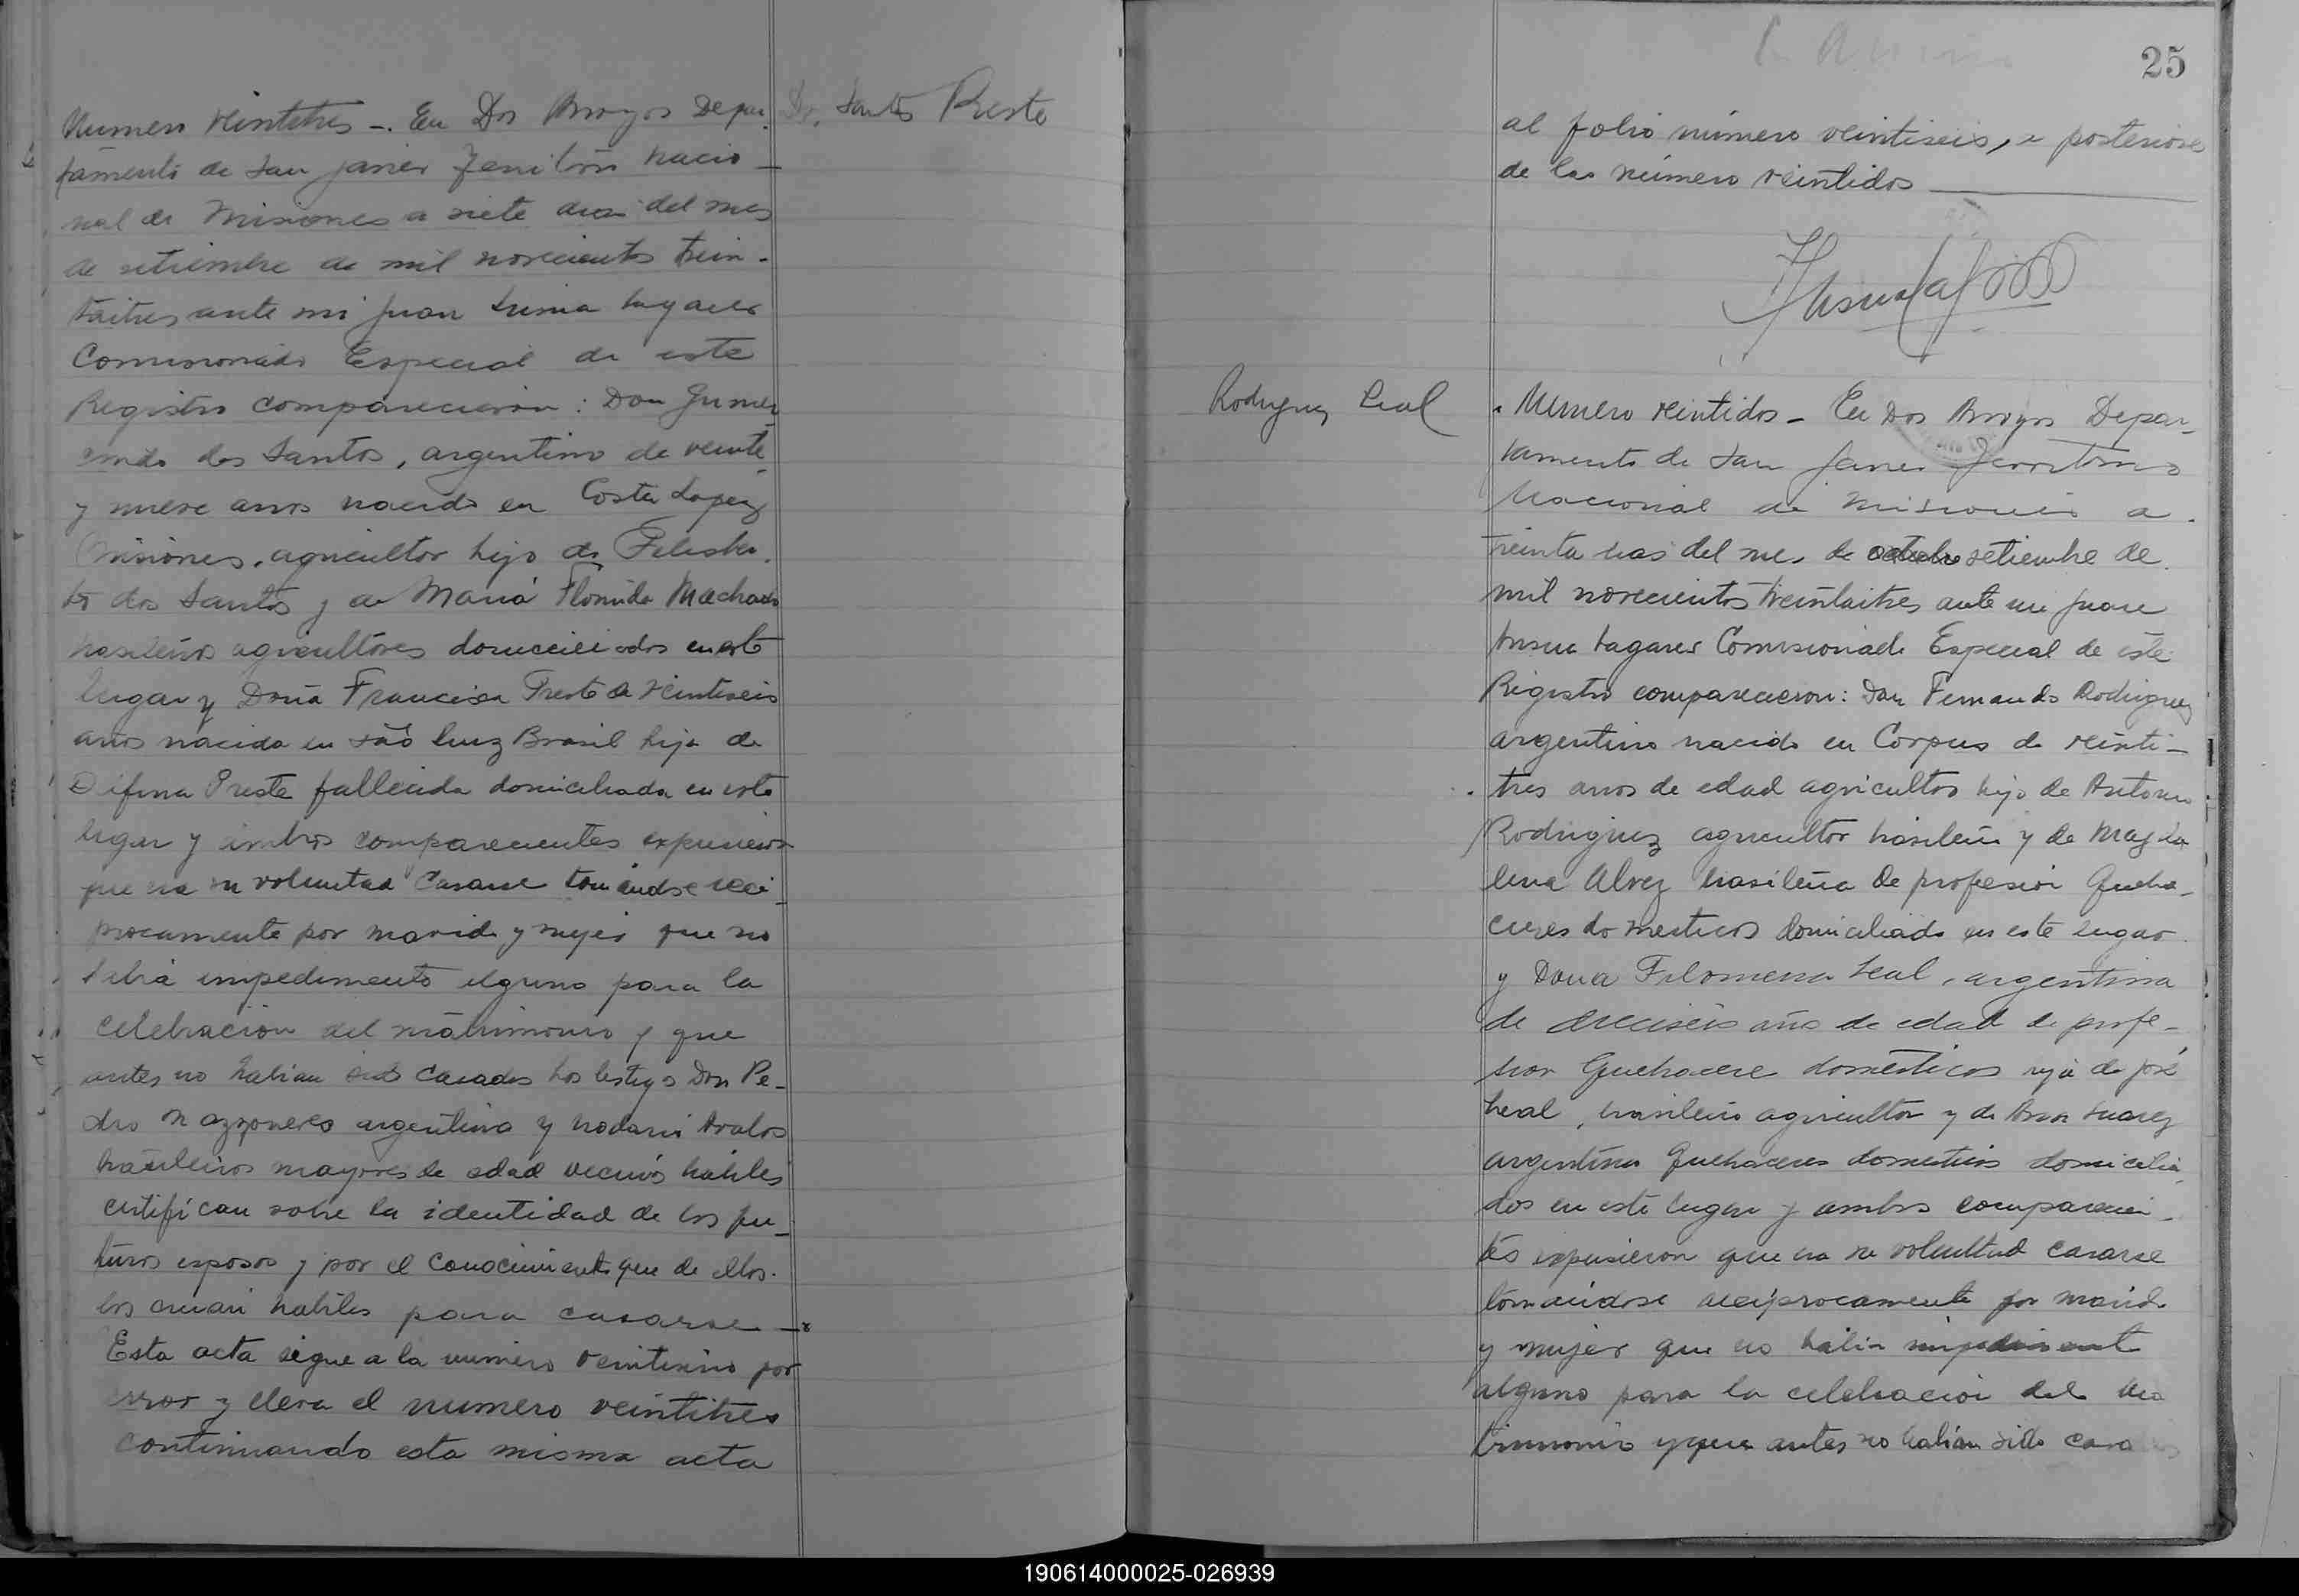 Dos Santos Preste
Numero Veintitres -. En Dos Arroyos Depar
tamento de San Javier Territorio nacio-
nal de Misiones a siete dias del mes
de setiembre de mil novecientos trein-
taitres ante mi Juan
Comisionado Especial de este
Registro comparecieron: Don Gumer
cindo dos Santos, argentino de veinte
y nueve anos nacido en Costa Lopez
Misiones, agricultor hijo de
dos Santos y de Maria Florinda Machado
brasileños agricultores domiciliados en este
lugar y Doña Francisca Preste de veintiseis
años nacida en São Luiz Brasil hija de
Difina Preste fallecida domiciliada en este
lugar y ambos comparecientes expusieron
que era su voluntad casarse tomandose reci-
procamente por marido y mujer que no
habia impedimento alguno para la
celebracion del matrimonio y que
antes no habian sido casados Los testigos Don Pe-
dro argentino y
brasileiros mayores de edad vecinos habiles
certifican sobre la identidad de los fu-
turos esposos y por el conocimiento que de ellos
los creian habiles para casarse -
Esta acta sigue a la numero veintiuno por
error y lleva el numero veintitres
continuando esta misma acta
25
al folio número veintiseis, a posteriore
de las número veintidos
Rodriguez Leal
Numero veintidos - En Dos Arroyos Depar-
tamento de San Javier Territorio
Nacional de Misiones a
treinta dias del mes de octubre setiembre de
mil novecientos treintaitres ante mi Juan
Comisionado Especial de este
Registro comparecieron: Don Fernando Rodriguez
argentino nacido en Corpus de veinti-
tres anos de edad agricultor hijo de Antonio
Rodriguez agricultor brasileño y de Magda
lena Alvez brasileña de profesion Queha-
ceres domesticos domiciliado en este lugar
y Dona Filomena Leal, argentina
de dieciseis año de edad de profe-
sion Quehacere domesticos hija de José
Leal, brasileño agricultor y de Ana Suarez
argentina Quehaceres domesticos domicilia
dos en este lugar y ambos comparecien-
tes expusieron que era su voluntad casarse
tomandose reciprocamente por marido
y mujer que no habia impediment
alguno para la celebracion del ma
trimonio y que antes no habian sido casados
190614000025-026939